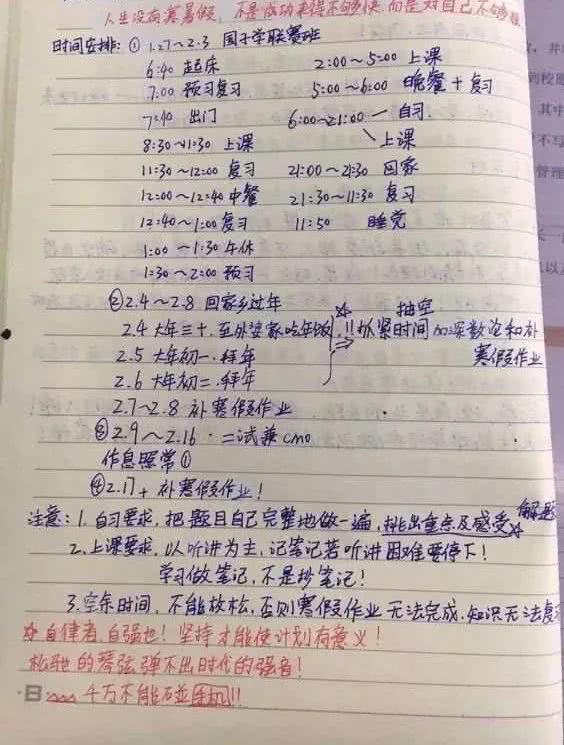 人生没有寒暑假，不是成功来得不够快，而是对自己不够狠
时间安排：① 1.27～2.3 国子学联赛班
6:40 起床
7:00 预习复习
7:40 出门
8:30～11:30 上课
11:30～12:00 复习
12:00～12:40 中餐
12:40～1:00 复习
1:00～1:30 午休
1:30～2:00 预习
2:00～5:00 上课
5:00～6:00 晚餐＋复习
6:00～21:00 一 自习.
上课
21:00～21:30 回家
21:30～11:30 复习
11:50 睡觉
② 2.4～2.8 回家乡过年
2.4 大年三十.至外婆家吃年饭
2.5 大年初一.拜年
2.6 大年初二.拜年
抽空
!! 抓紧时间 加深数论和补
寒假作业
2.7～2.8 补寒假作业
③ 2.9～2.16.二试兼CMO
作息照常①
④ 2.17+ 补寒假作业！
注意：1. 自习要求，把题目自己完整地做一遍，挑出重点及感受 解题
2. 上课要求，以听讲为主，记笔记若听讲困难要停下！
学习做笔记，不是抄笔记！
3. 空余时间，不能放松，否则寒假作业无法完成.知识无法复
☆ 自律者，自强也！坚持才能使计划有意义！
松弛的琴弦弹不出时代的强音！
千万不能碰手机!!
其中
不写
管理